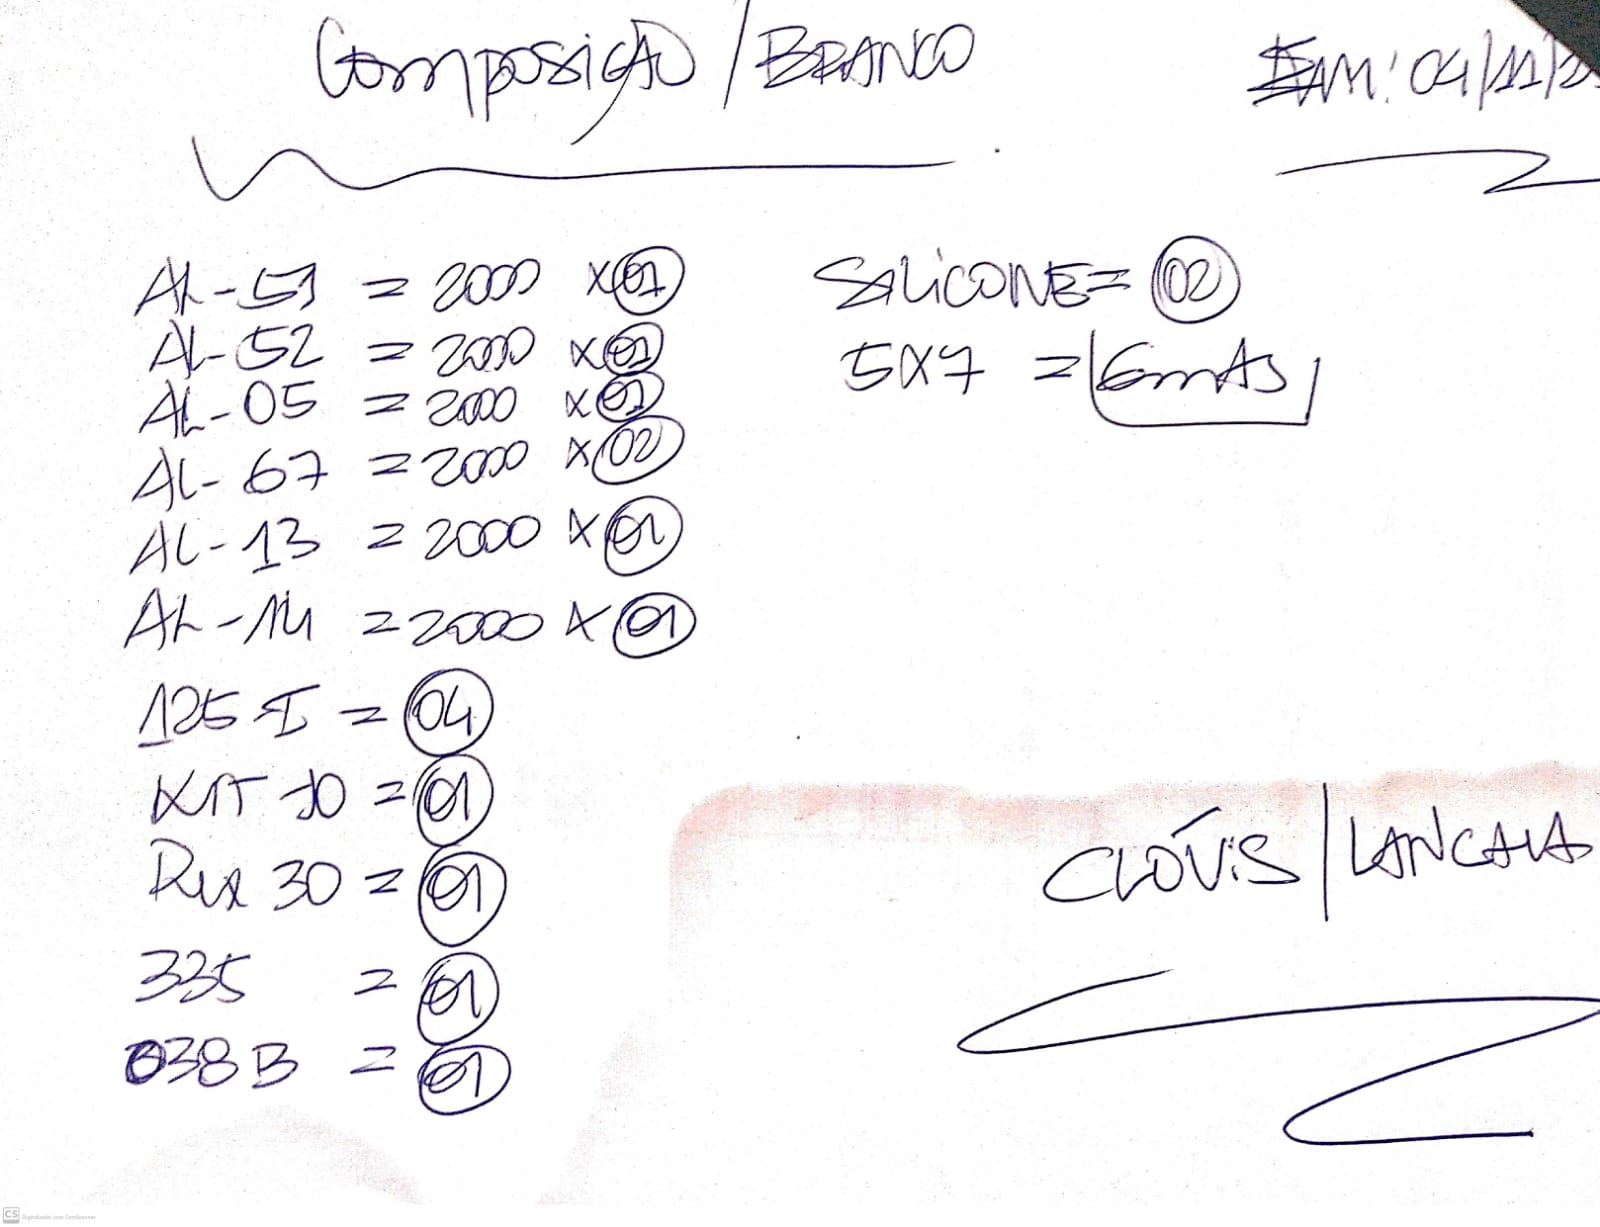 Composição / BRANCO
EM: 04/11/2
AL-51 = 2000 x 01
AL-52 = 2000 x 01
AL-05 = 2000 x 01
AL-67 = 2000 x 02
AL-13 = 2000 x 01
AL-14 = 2000 x 01
125 I = 04
KIT 10 = 01
Rux 30 = 01
335 = 01
038 B = 01
SILICONE = 02
5x7 = 6mts
CLÓVIS / LANCALA
CS